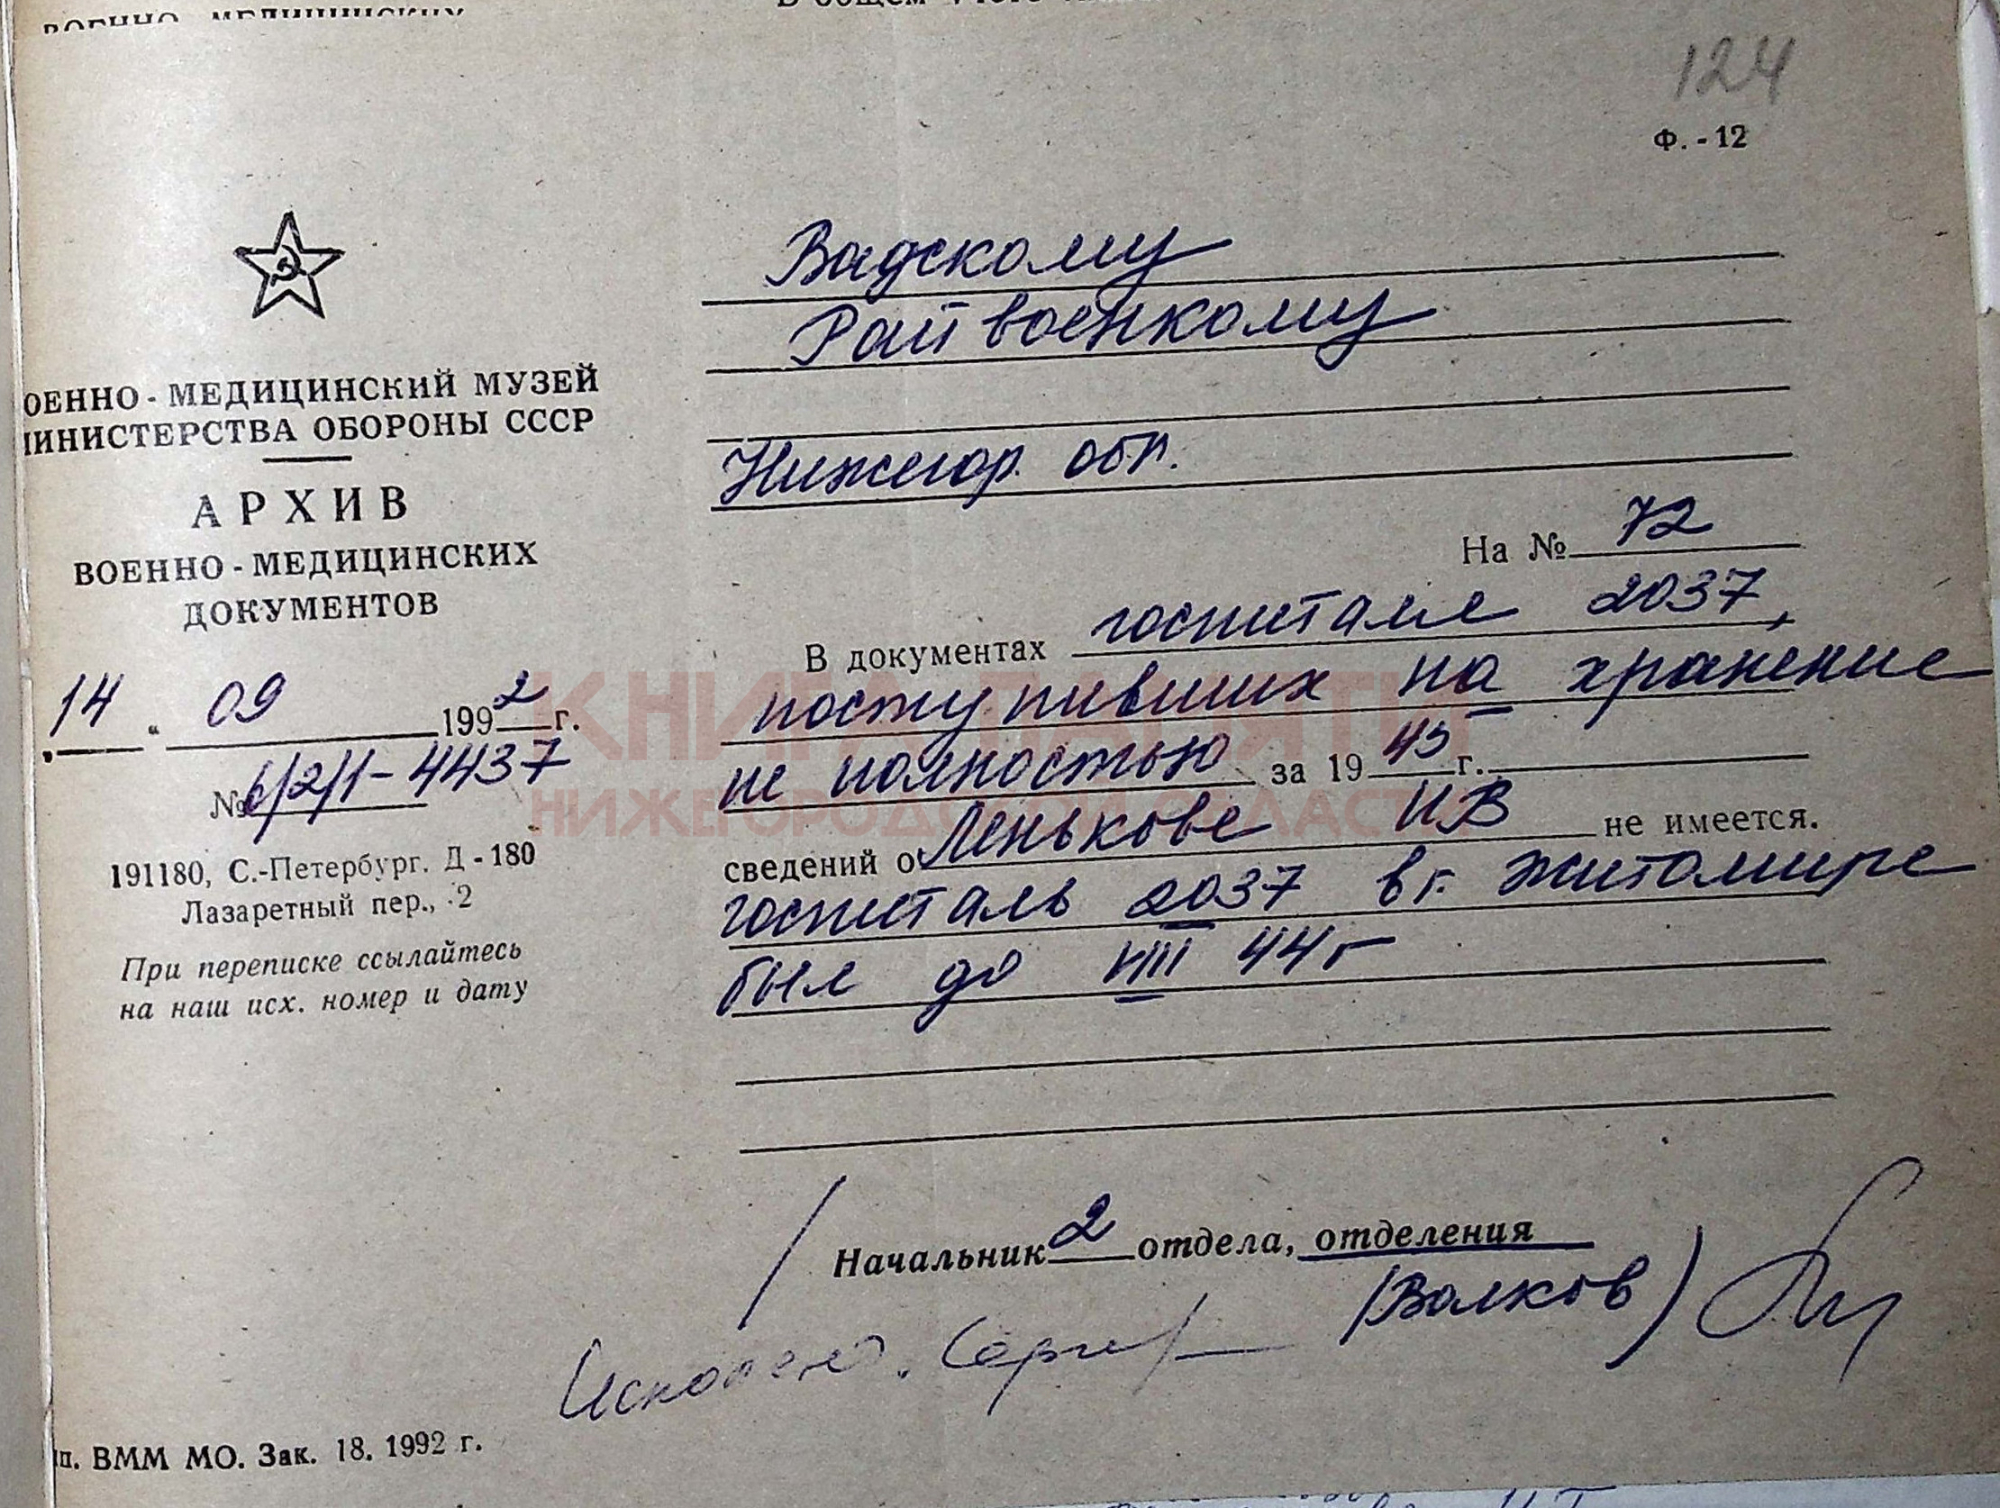 124
Ф. - 12
ОЕННО - МЕДИЦИНСКИЙ МУЗЕЙ
ИНИСТЕРСТВА ОБОРОНЫ СССР
АРХИВ
ВОЕННО - МЕДИЦИНСКИХ
ДОКУМЕНТОВ
14 " 09 1992 г.
№ 6/2/1-4437
191180, С.-Петербург, Д - 180
Лазаретный пер., 2
При переписке ссылайтесь
на наш исх. номер и дату
Вадскому
Рай военкому
Нижегор. обл.
На № 72
В документах госпиталя 2037,
поступивших на хранение
не полностью за 1945 г.
сведений о Ленькове И В не имеется.
госпиталь 2037 в г. Житомире
был до VIII 44 г
Начальник 2 отдела, отделения
(Волков)
п. ВММ МО. Зак. 18. 1992 г.
КНИГА ПАМЯТИ
НИЖЕГОРОДСКОЙ ОБЛАСТИ